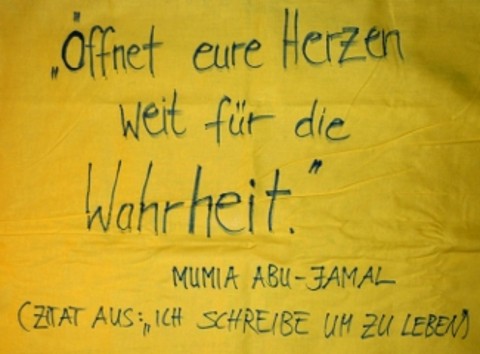 „Öffnet eure Herzen
weit für die
Wahrheit.“
MUMIA ABU-JAMAL
(ZITAT AUS: „ICH SCHREIBE UM ZU LEBEN)